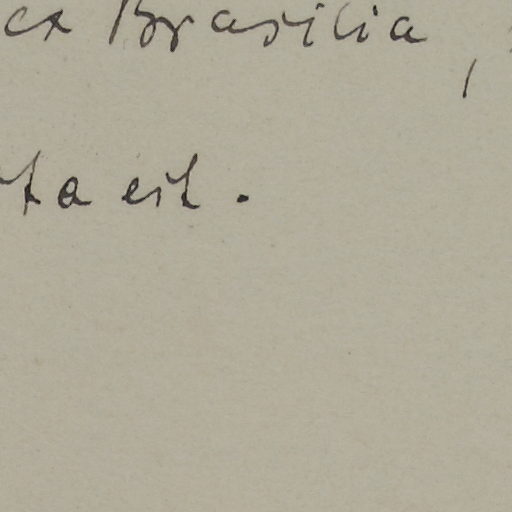 ex Brasilia,
ta est.